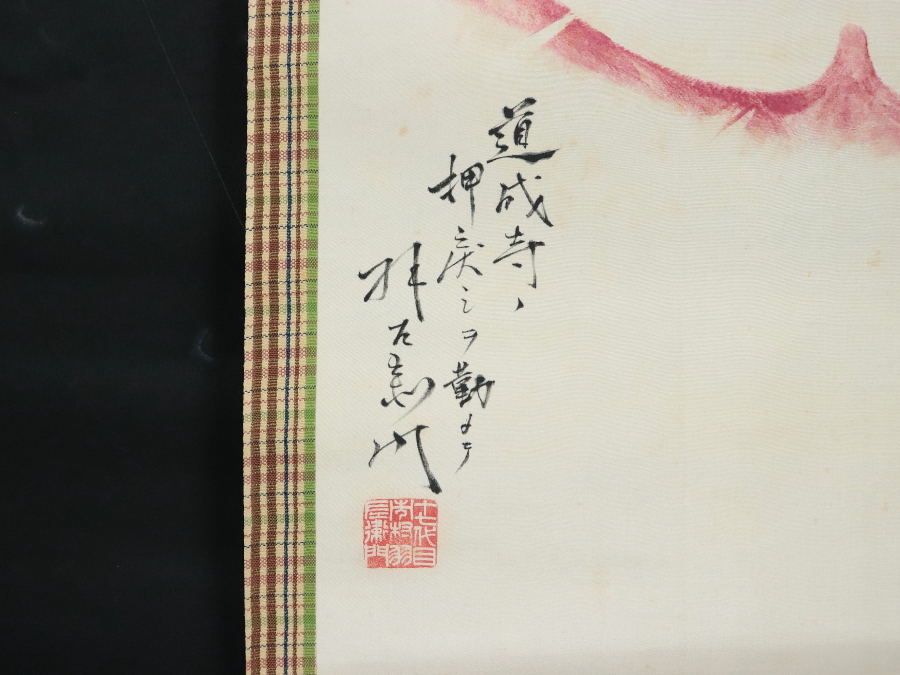 道成寺、
押戻シヲ勤メテ
羽左衛門
十七代目
市村羽
左衛門